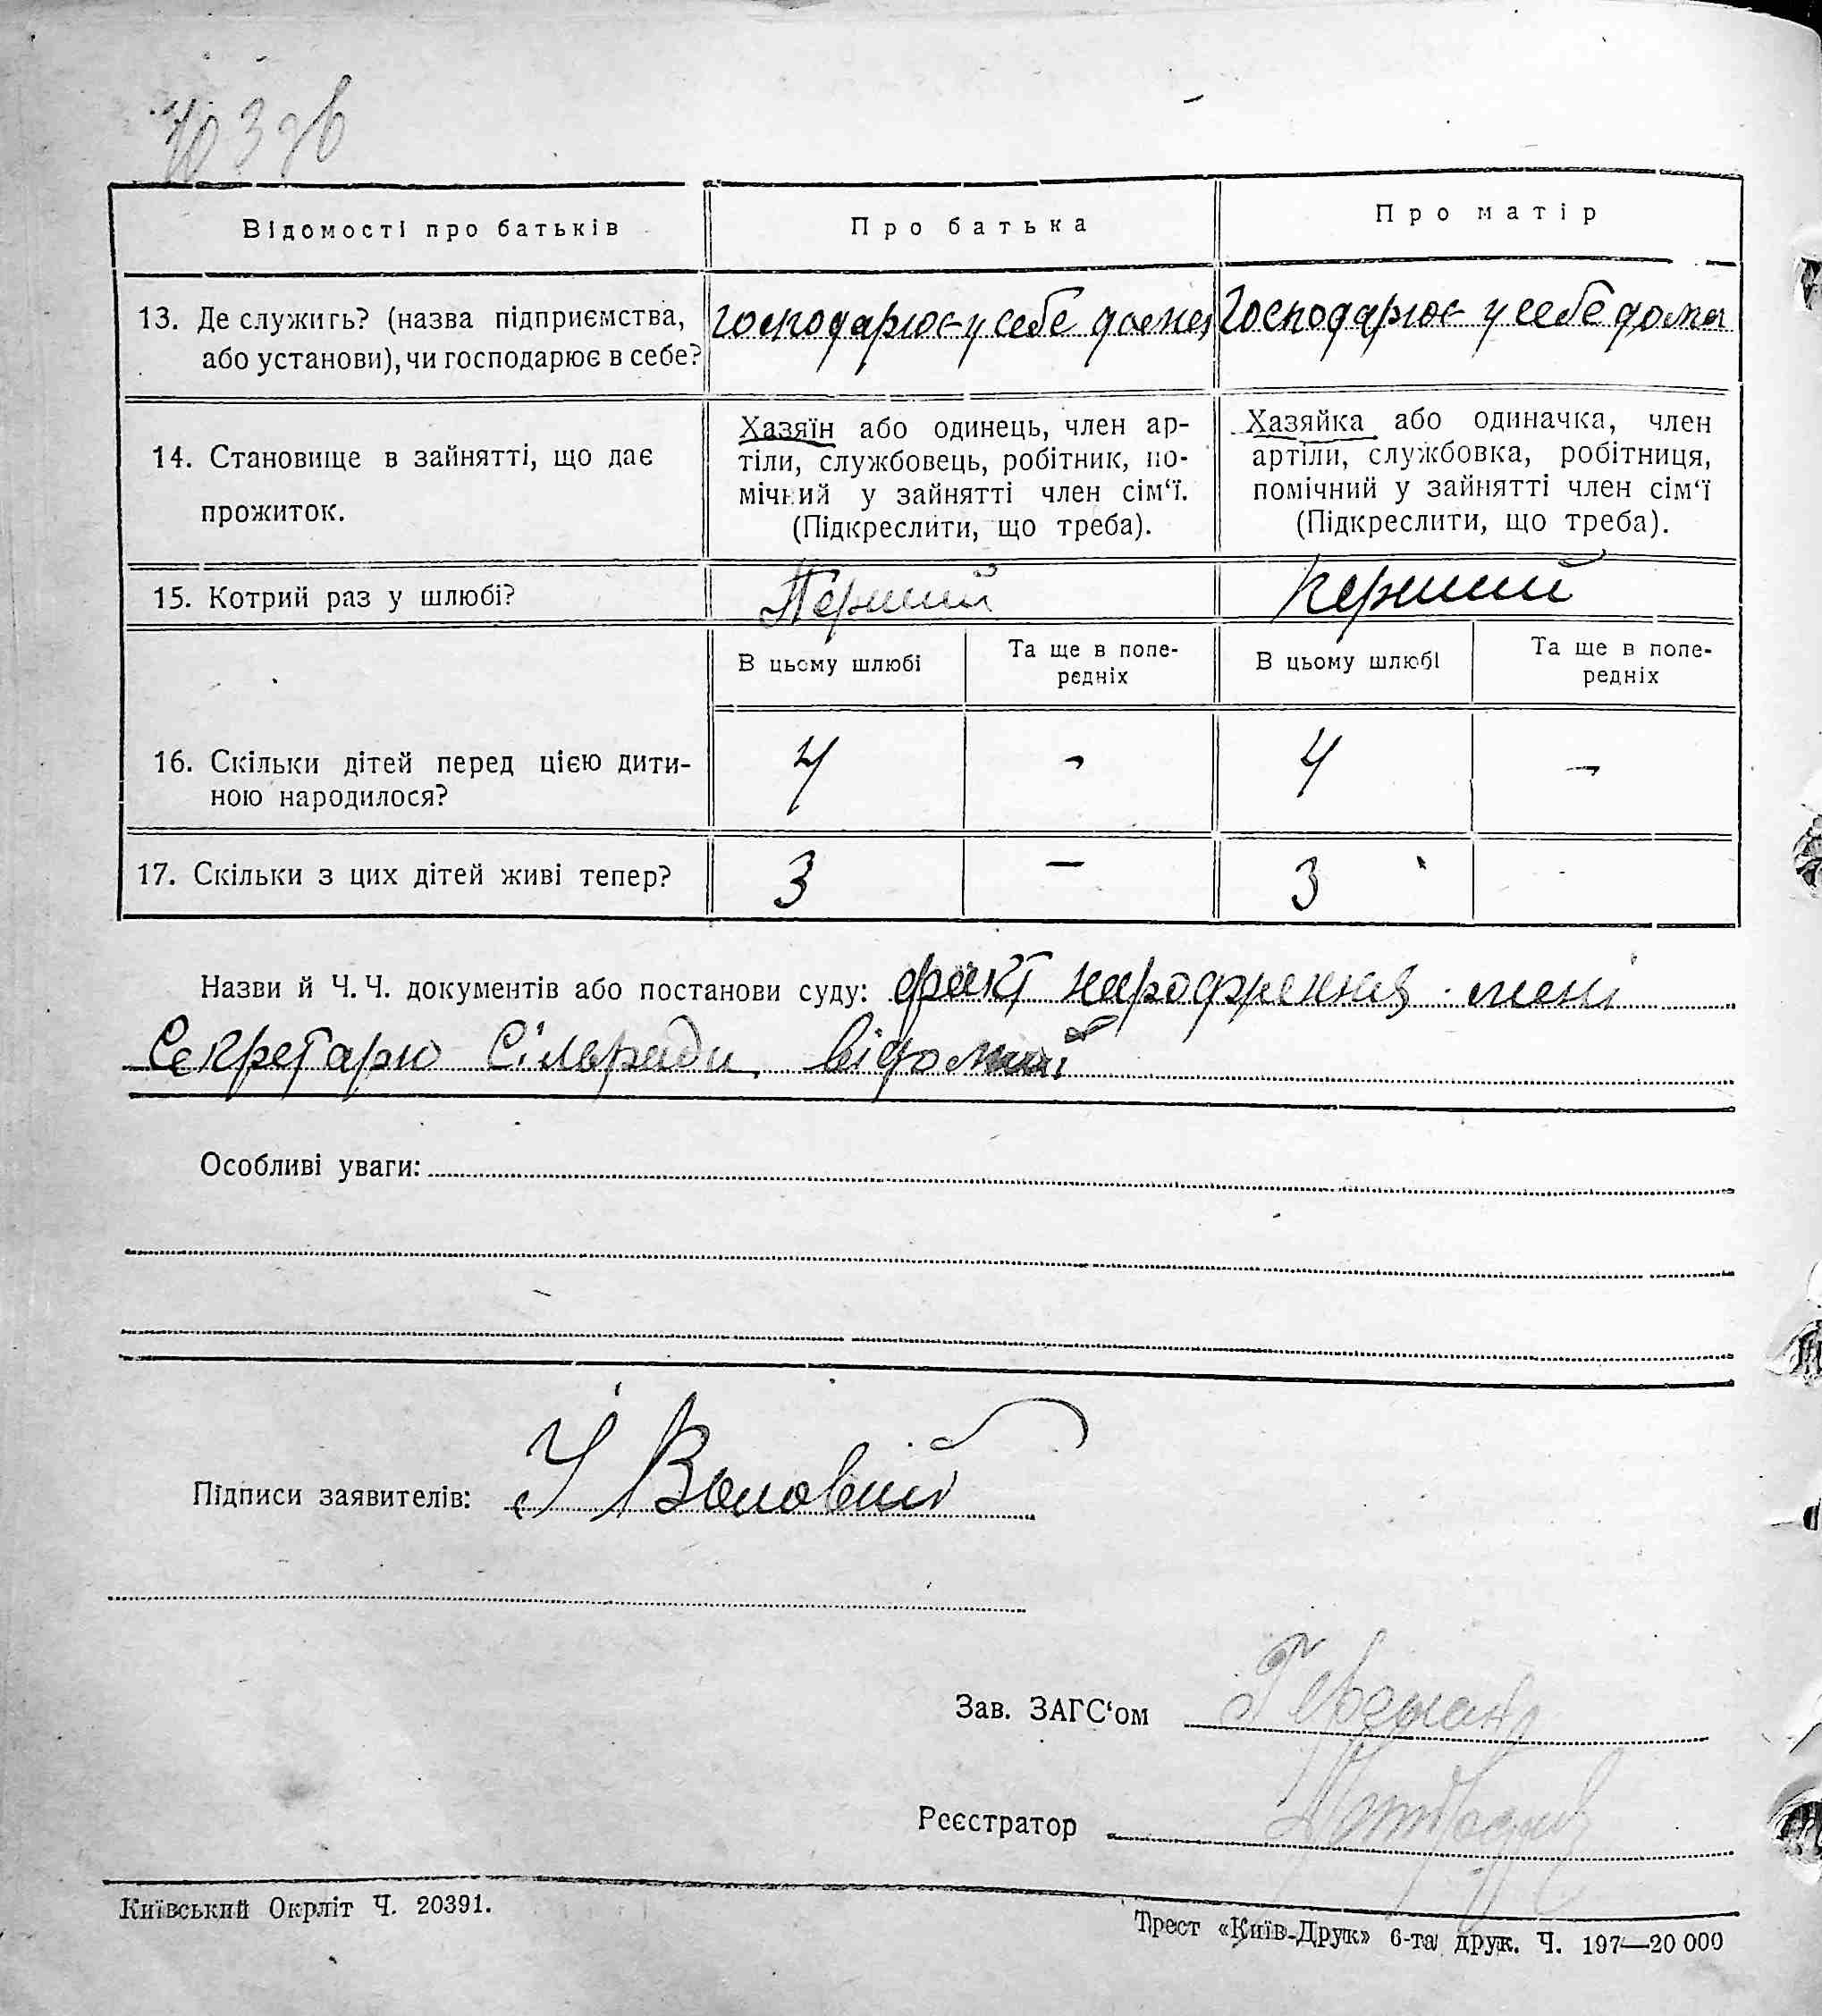 Відомості про батьків
Про батька
Про матір
13. Де служить? (назва підприємства,
або установи), чи господарює в себе?
господарює у себе дома
Господарює у себе дома
14. Становище в зайнятті, що дає
прожиток.
Хазяїн або одинець, член ар-
тіли, службовець, робітник, по-
мічний у зайнятті член сім‘ї.
(Підкреслити, що треба).
Хазяйка або одиначка, член
артіли, службовка, робітниця,
помічний у зайнятті член сім‘ї
(Підкреслити, що треба).
15. Котрий раз у шлюбі?
Перший
Перший
В цьому шлюбі
Та ще в попе-
редніх
В цьому шлюбі
Та ще в попе-
редніх
16. Скільки дітей перед цією дити-
ною народилося?
4
-
4
-
17. Скільки з цих дітей живі тепер?
3
—
3
-
Назви й Ч. Ч. документів або постанови суду: факт народження мені
Секретарю Сільради відомий
Особливі уваги:
Підписи заявителів:
Зав. ЗАГС‘ом
Реєстратор
Київський Окрліт Ч. 20391.
Трест «Київ-Друк» 6-та друк. Ч. 197—20 000